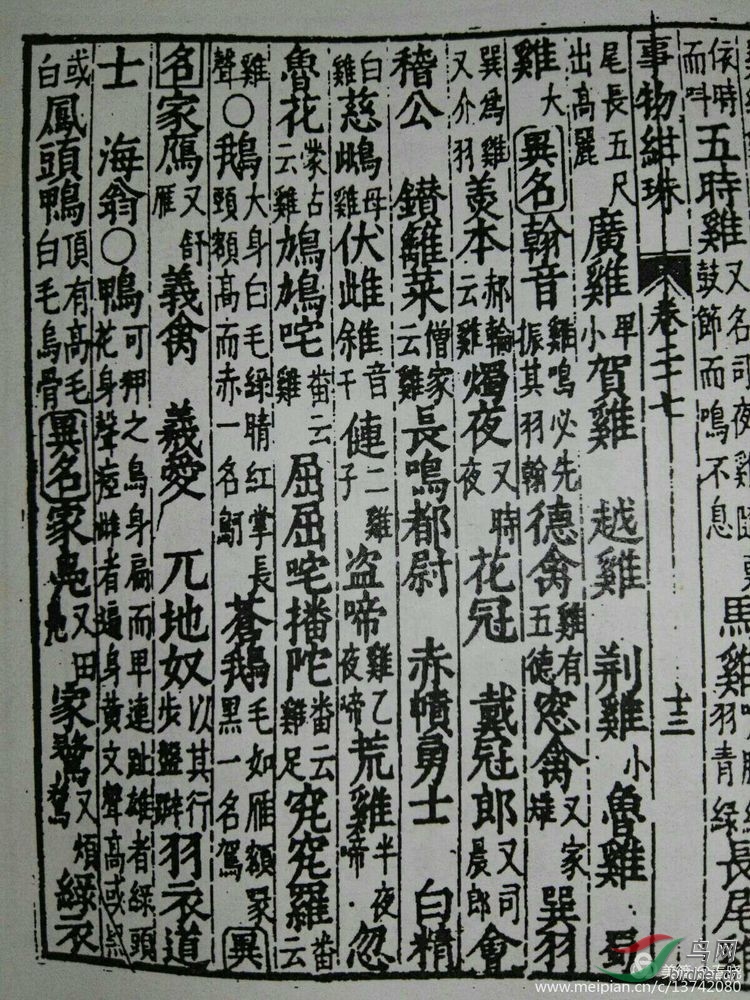 依時而呌 五時雞 又名司夜雞隨 鼓節而鳴不息 馬雞 羽青綠 長尾雞
事物紺珠 卷二十七 十三
尾長五尺出高麗 廣雞 卑小 賀雞 越雞 荆雞 小 魯雞 蜀
雞 大 異名 翰音 雞鳴必先振其羽翰 德禽 雞有五德 窓禽 又家雉 巽羽
巽為雞又介羽 羙本 郝輪云雞 燭夜 又時夜 花冠 戴冠郎 又司晨郎 會
稽公 鑚籬菜 僧家云雞 長鳴都尉 赤幘勇士 白精
白雞 慈鴟 母雞 伏雌 僆 二雞子 盗啼 雞乙夜啼 荒雞 半夜啼 忽
魯花 蒙古云雞 鳩鳩咤 畨云雞 屈屈咤播陀 畨云雞足 究究羅 畨云
雞聲 ○鵝 大身白毛綠睛紅掌長頸額高而赤一名鴚 蒼鵝 毛如雁額冢黑一名駕 異
名 家鴈 又舒雁 義禽 義愛 兀地奴 以其行步盤跚 羽衣道
士 海翁 ○鴨 可狎之鳥身扁而甲連趾雄者綠頭花身聲瘂雌者遍身黄文聲高或黑
或白 鳳頭鴨 頂有高毛白毛烏骨 異名 家鳧 又田鳧 家鶩 又煩鶩 綠衣
鸟网
birdnet.cn
www.meipian.cn/c/13742080